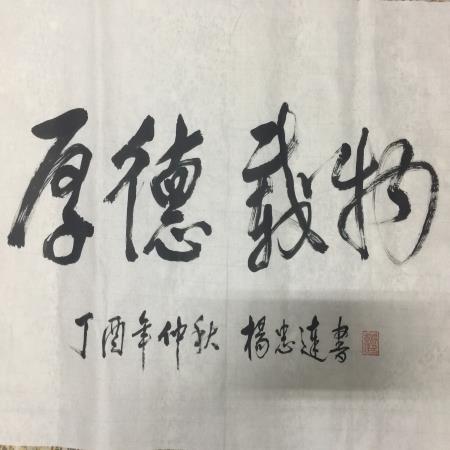 厚德载物
丁酉年仲秋 楊忠達書